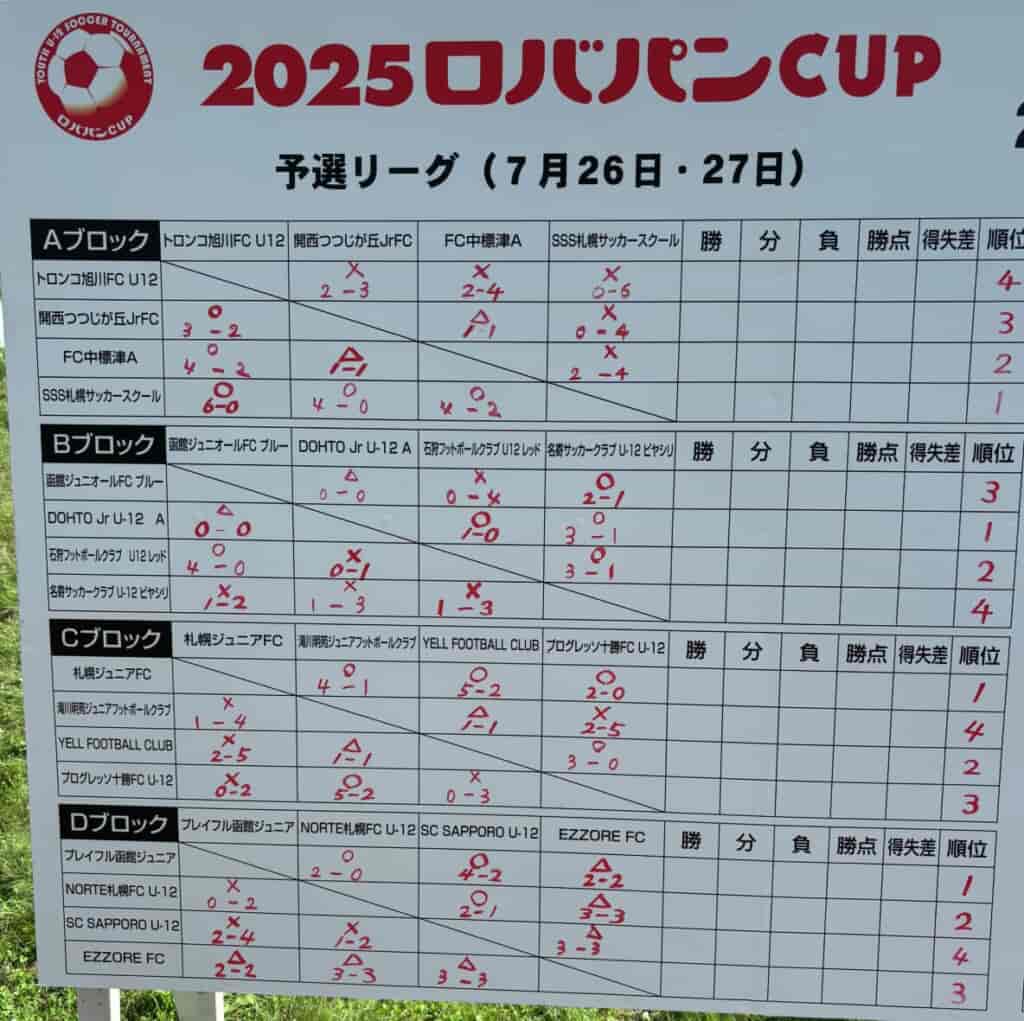 YOUTH U-12 SOCCER TOURNAMENT
ロバパンCUP
2025ロバパンCUP
予選リーグ（7月26日・27日）
Aブロック トロンコ旭川FC U12 開西つつじが丘JrFC FC中標津A SSS札幌サッカースクール 勝 分 負 勝点 得失差 順位
トロンコ旭川FC U12 × 2-3 × 2-4 × 0-6 4
開西つつじが丘JrFC ○ 3-2 △ 1-1 × 0-4 3
FC中標津A ○ 4-2 △ 1-1 × 2-4 2
SSS札幌サッカースクール ○ 6-0 ○ 4-0 ○ 4-2 1
Bブロック 函館ジュニオールFC ブルー DOHTO Jr U-12 A 石狩フットボールクラブ U12 レッド 名寄サッカークラブ U-12 ピヤシリ 勝 分 負 勝点 得失差 順位
函館ジュニオールFC ブルー △ 0-0 × 0-4 ○ 2-1 3
DOHTO Jr U-12 A △ 0-0 ○ 1-0 ○ 3-1 1
石狩フットボールクラブ U12 レッド ○ 4-0 × 0-1 ○ 3-1 2
名寄サッカークラブ U-12 ピヤシリ × 1-2 × 1-3 × 1-3 4
Cブロック 札幌ジュニアFC 滝川明苑ジュニアフットボールクラブ YELL FOOTBALL CLUB プログレッソ十勝FC U-12 勝 分 負 勝点 得失差 順位
札幌ジュニアFC ○ 4-1 ○ 5-2 ○ 2-0 1
滝川明苑ジュニアフットボールクラブ × 1-4 △ 1-1 × 2-5 4
YELL FOOTBALL CLUB × 2-5 △ 1-1 ○ 3-0 2
プログレッソ十勝FC U-12 × 0-2 ○ 5-2 × 0-3 3
Dブロック プレイフル函館ジュニア NORTE札幌FC U-12 SC SAPPORO U-12 EZZORE FC 勝 分 負 勝点 得失差 順位
プレイフル函館ジュニア ○ 2-0 ○ 4-2 △ 2-2 1
NORTE札幌FC U-12 × 0-2 ○ 2-1 △ 3-3 2
SC SAPPORO U-12 × 2-4 × 1-2 △ 3-3 4
EZZORE FC △ 2-2 △ 3-3 △ 3-3 3